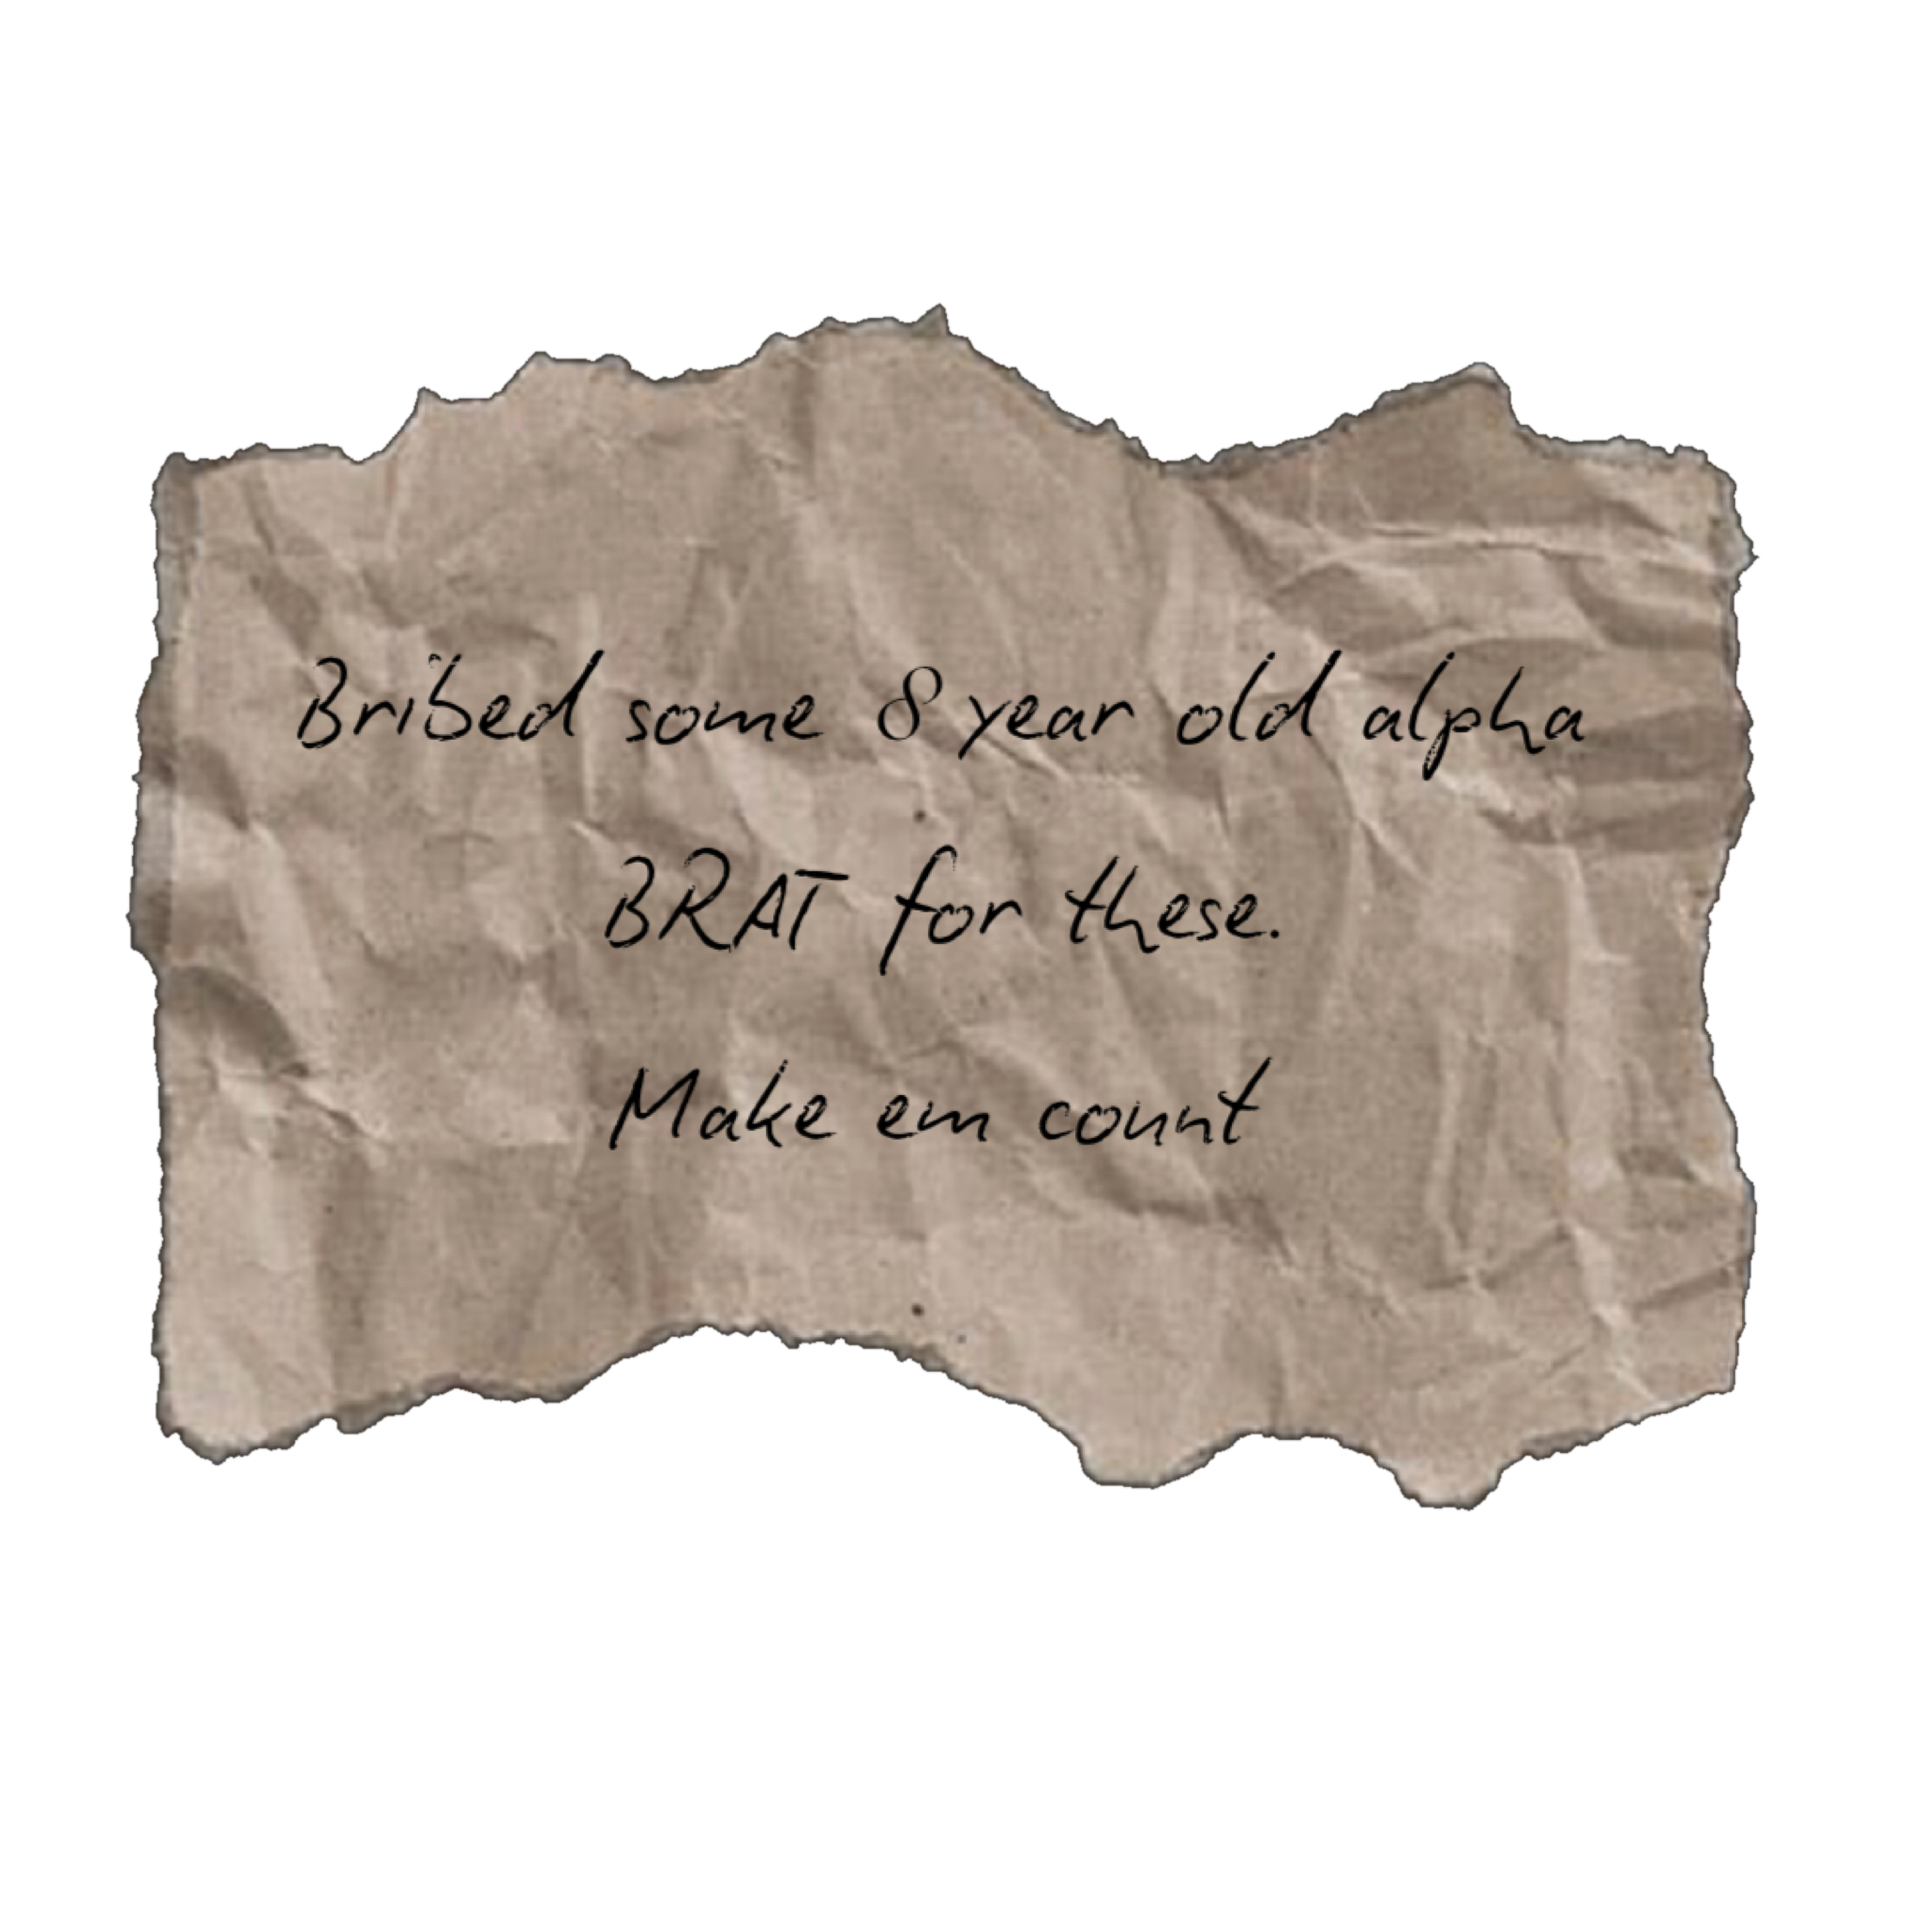 Bribed some 8 year old alpha
BRAT for these.
Make em count